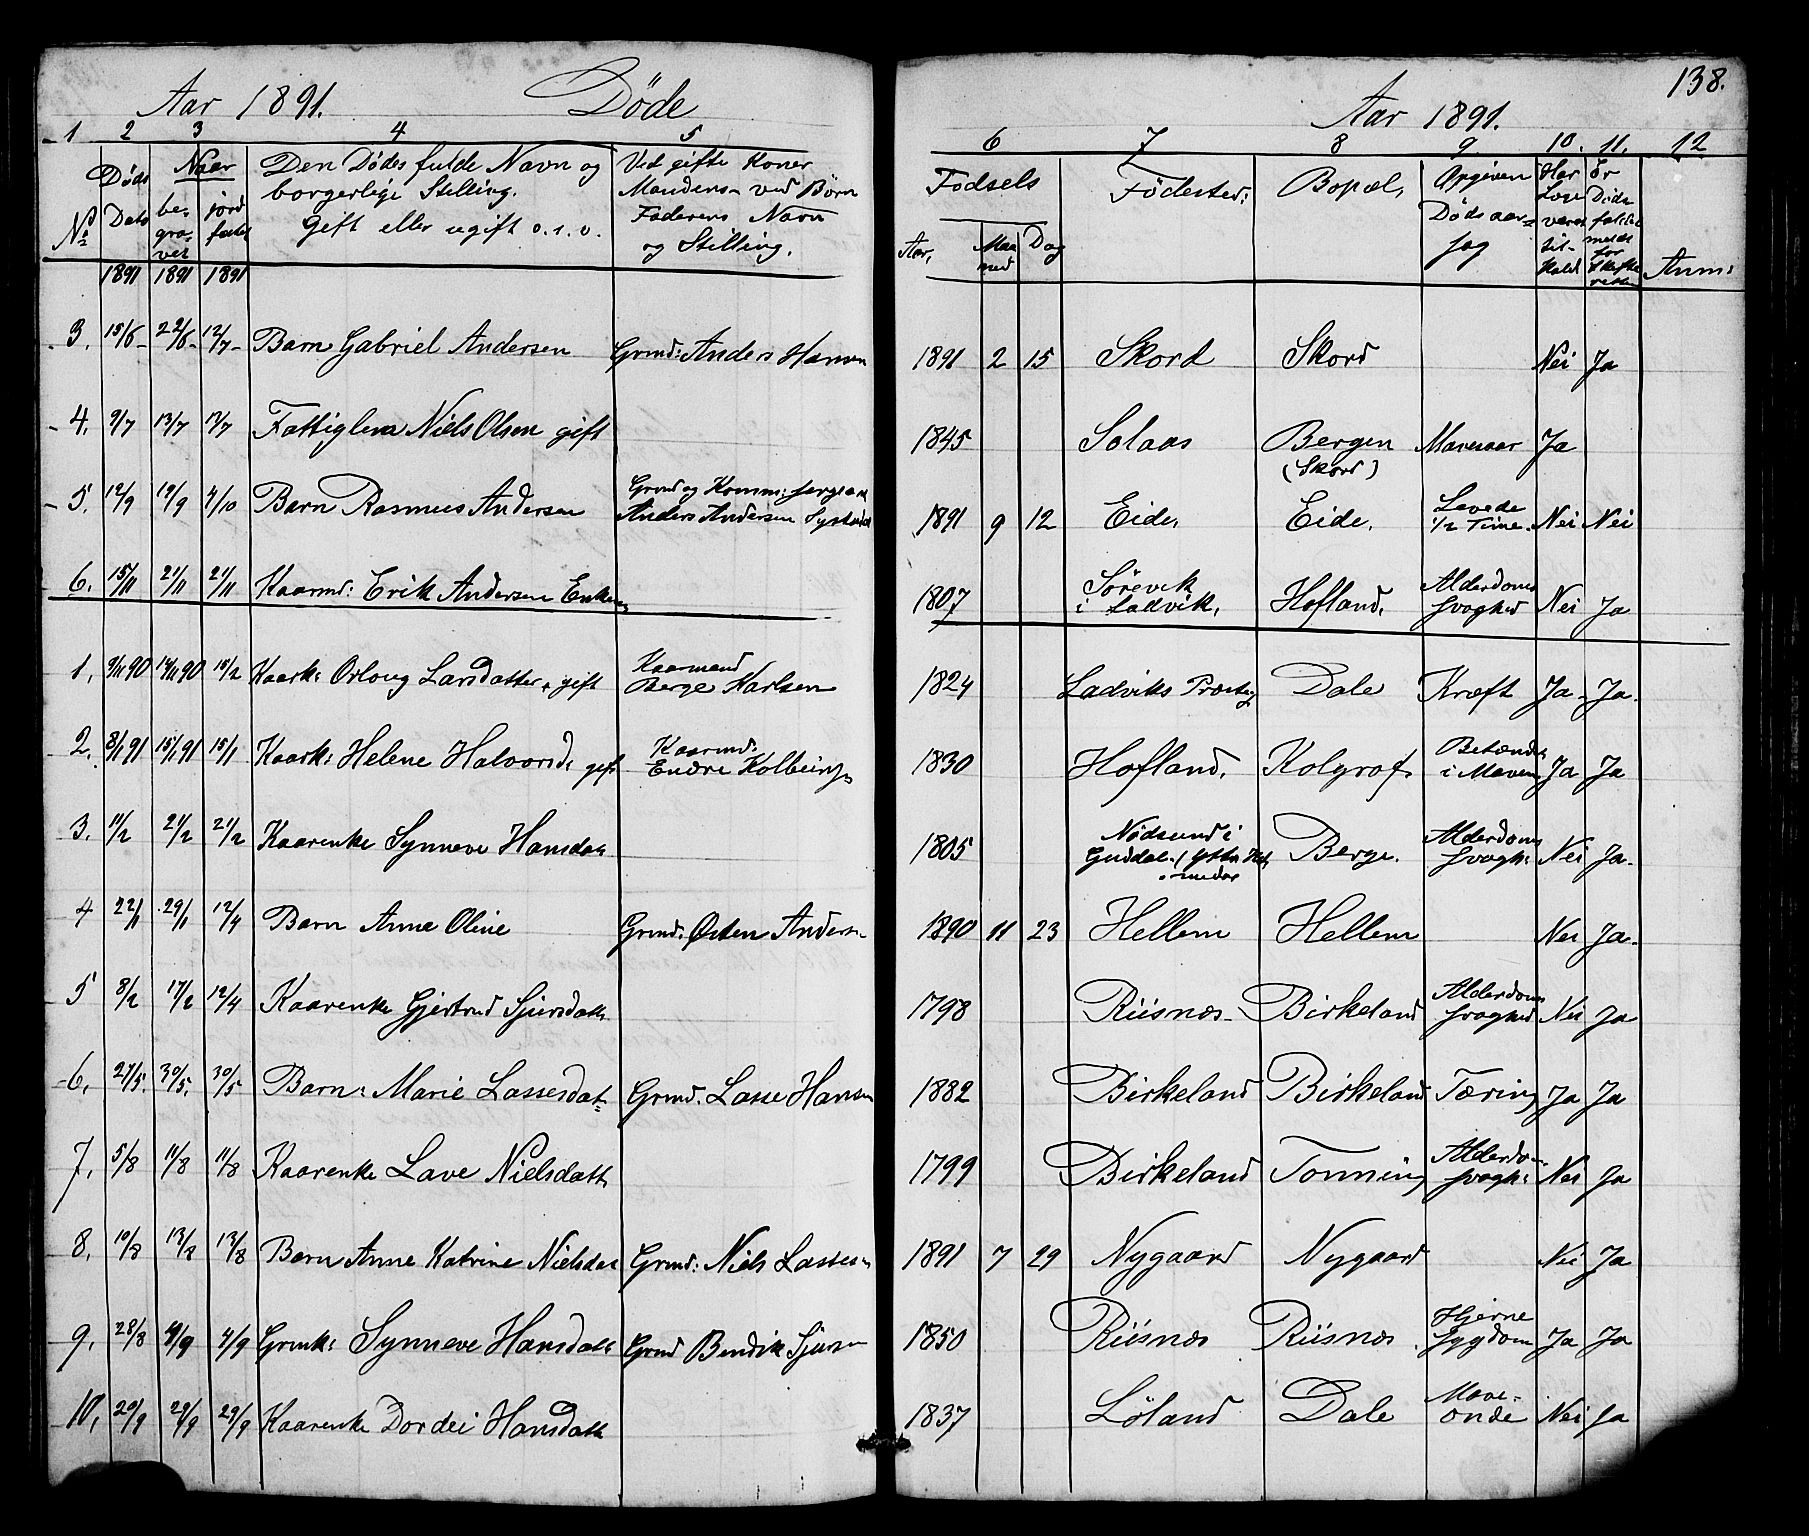 Aar 1891. Døde
1 2 3 4 5
Nº Døds Dato Naar be- gra- vet jord fæstet Den Dødes fulde Navn og borgerlige Stilling. Gift eller ugift o.s.v. Ved gifte Koner Mandens - ved Børn Faderens Navn og Stilling.
1891 1891 1891
3. 15/6 22/6 12/7 Barn Gabriel Andersen Grmd: Anders Hansen
4. 9/7 13/7 13/7 Fattiglem Niels Olsen gift
5. 12/9 19/9 4/10 Barn Rasmus Andersen Grmd og Anders Andersen
6. 15/11 21/11 21/11 Kaarmd: Erik Andersen Enkem.
1. 9/11 90 14/11 90 15/2 Kaark: Orloug Larsdatter, gift Kaarmand Berge Karlsen
2. 8/1 91 15/1 91 15/1 Kaark: Helene Halvorsd. gift Kaarmd: Endre Kolbeins.
3. 11/2 21/2 21/2 Kaarenke Synneve Hansdat.
4 22/1 29/1 12/4 Barn Anne Oline Grmd: Østen Anders.
5 8/2 17/2 12/4 Kaarenke Gjertrud Sjursdatt.
6. 27/5. 30/5. 30/5 Barn: Marie Lassesdat= Grmd. Lasse Hansen
7. 5/8 11/8 11/8 Kaarenke Lave Nielsdatt.
8. 10/8 13/8 13/8 Barn Anne Katrine Nielsdat Grmd: Niels Lasses.
9. 28/8 4/9 4/9 Grmk: Synneve Hansdatt. Grmd Bendik Sjursen
10. 20/9 29/9 29/9 Kaarenke Dordei Hansdatt.
138.
Aar 1891.
6 7 8 9. 10. 11. 12
Fødsels Aar, Maa ned Dag Fødested: Bopæl, Opgiven Dødsaar= sag Har Læge været til- kaldt Er Døds faldet meldt for Skifte retten Anm:
1891 2 15 Skord Skord Nei Ja
1845 Solaas Bergen (Skord) Mavesaar Ja
1891 9 12 Eide, Eide. Levede 1/2 Time. Nei Nei
1807 Sørevik i Ladvik, Hofland. Alderdoms svaghed Nei Ja
1824 Ladviks Præstg. Dale Kræft Ja - Ja.
1830 Hofland. Kolgrof. Betændl. i Maven Ja Ja
1805 Nødsund i Guddal. (Ytre Hol medal Berge. Alderdoms svagh: Nei Ja.
1890 11 23 Hellem Hellem Nei Ja.
1798 Riisnæs - Birkeland Alderdoms svaghed Nei Ja
1882 Birkeland Birkeland Tæring Ja Ja
1799 Birkeland Tonning Alderdom. svagh: Nei Ja
1891 7 29 Nygaard Nygaard Nei Ja
1850 Riisnæs Riisnæs Hjerne sygdom Ja Ja
1837 Løland Dale Mave- onde Nei Ja